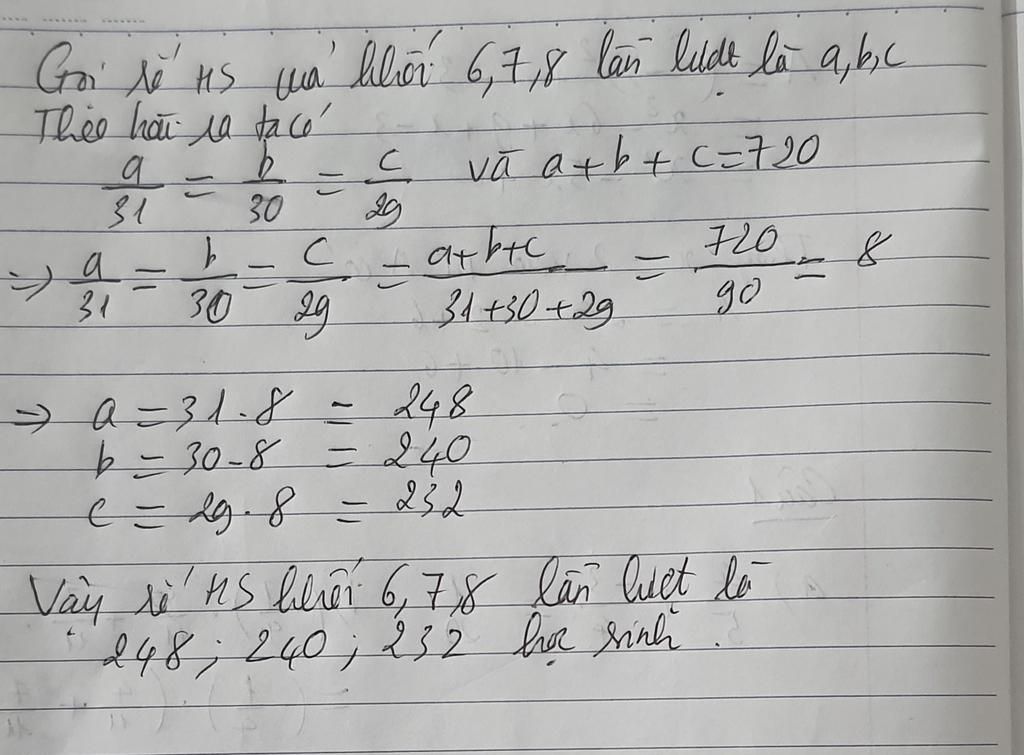 Gọi số HS của khối 6,7,8 lần lượt là a,b,c
Theo bài ra ta có
a/31 = b/30 = c/29 và a+b+c=720
=> a/31 = b/30 = c/29 = a+b+c/31+30+29 = 720/90 = 8
=> a = 31.8 = 248
b = 30.8 = 240
c = 29.8 = 232
Vậy số HS khối 6,7,8 lần lượt là
248; 240; 232 học sinh.